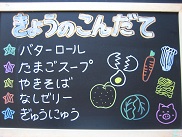 きょうのこんだて
バターロール
たまごスープ
やきそば
なしゼリー
ぎゅうにゅう